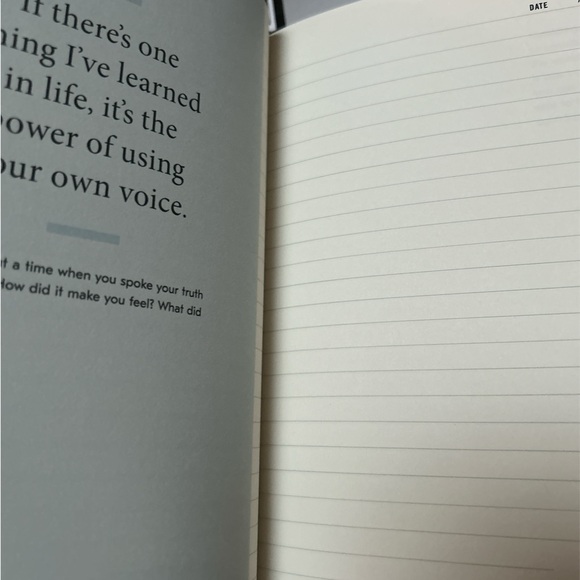 If there's one
hing I've learned
in life, it's the
power of using
our own voice.
t a time when you spoke your truth
How did it make you feel? What did
DATE